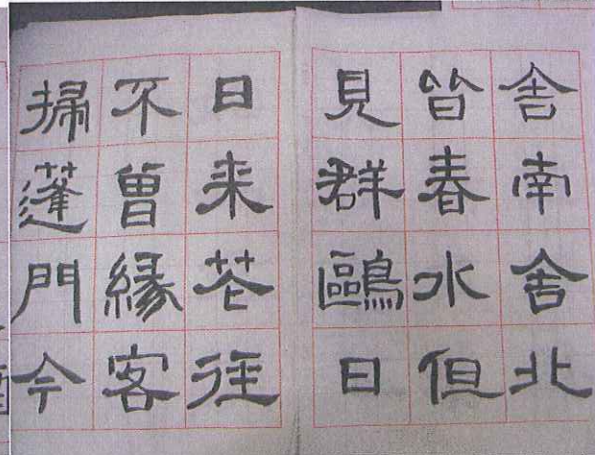 舍南舍北
皆春水但
見群鷗日
日来花径
不曾緣客
掃蓬門今